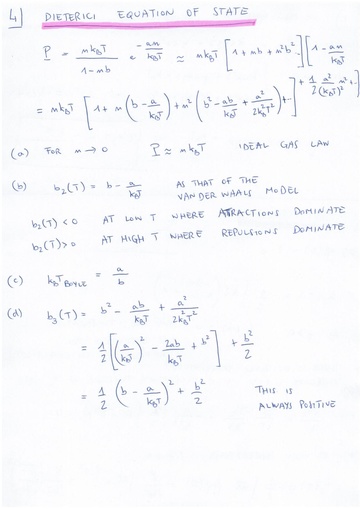 4] DIETERICI EQUATION OF STATE
P = nk_BT / (1-nb) e^(-an/k_BT) ≃ nk_BT [1 + nb + n²b²..][1 - an/k_BT + 1/2 a²/(k_BT)² n² + ..]
= nk_BT [1 + n(b - a/k_BT) + n²(b² - ab/k_BT + a²/2k_B²T²) + ..]
(a) FOR n → 0 P ≃ nk_BT IDEAL GAS LAW
(b) b₂(T) = b - a/k_BT AS THAT OF THE
VAN DER WAALS MODEL
b₂(T) < 0 AT LOW T WHERE ATTRACTIONS DOMINATE
b₂(T) > 0 AT HIGH T WHERE REPULSIONS DOMINATE
(c) k_BT_BOYLE = a/b
(d) b₃(T) = b² - ab/k_BT + a²/2k_B²T²
= 1/2 [(a/k_BT)² - 2ab/k_BT + b²] + b²/2
= 1/2 (b - a/k_BT)² + b²/2 THIS IS
ALWAYS POSITIVE